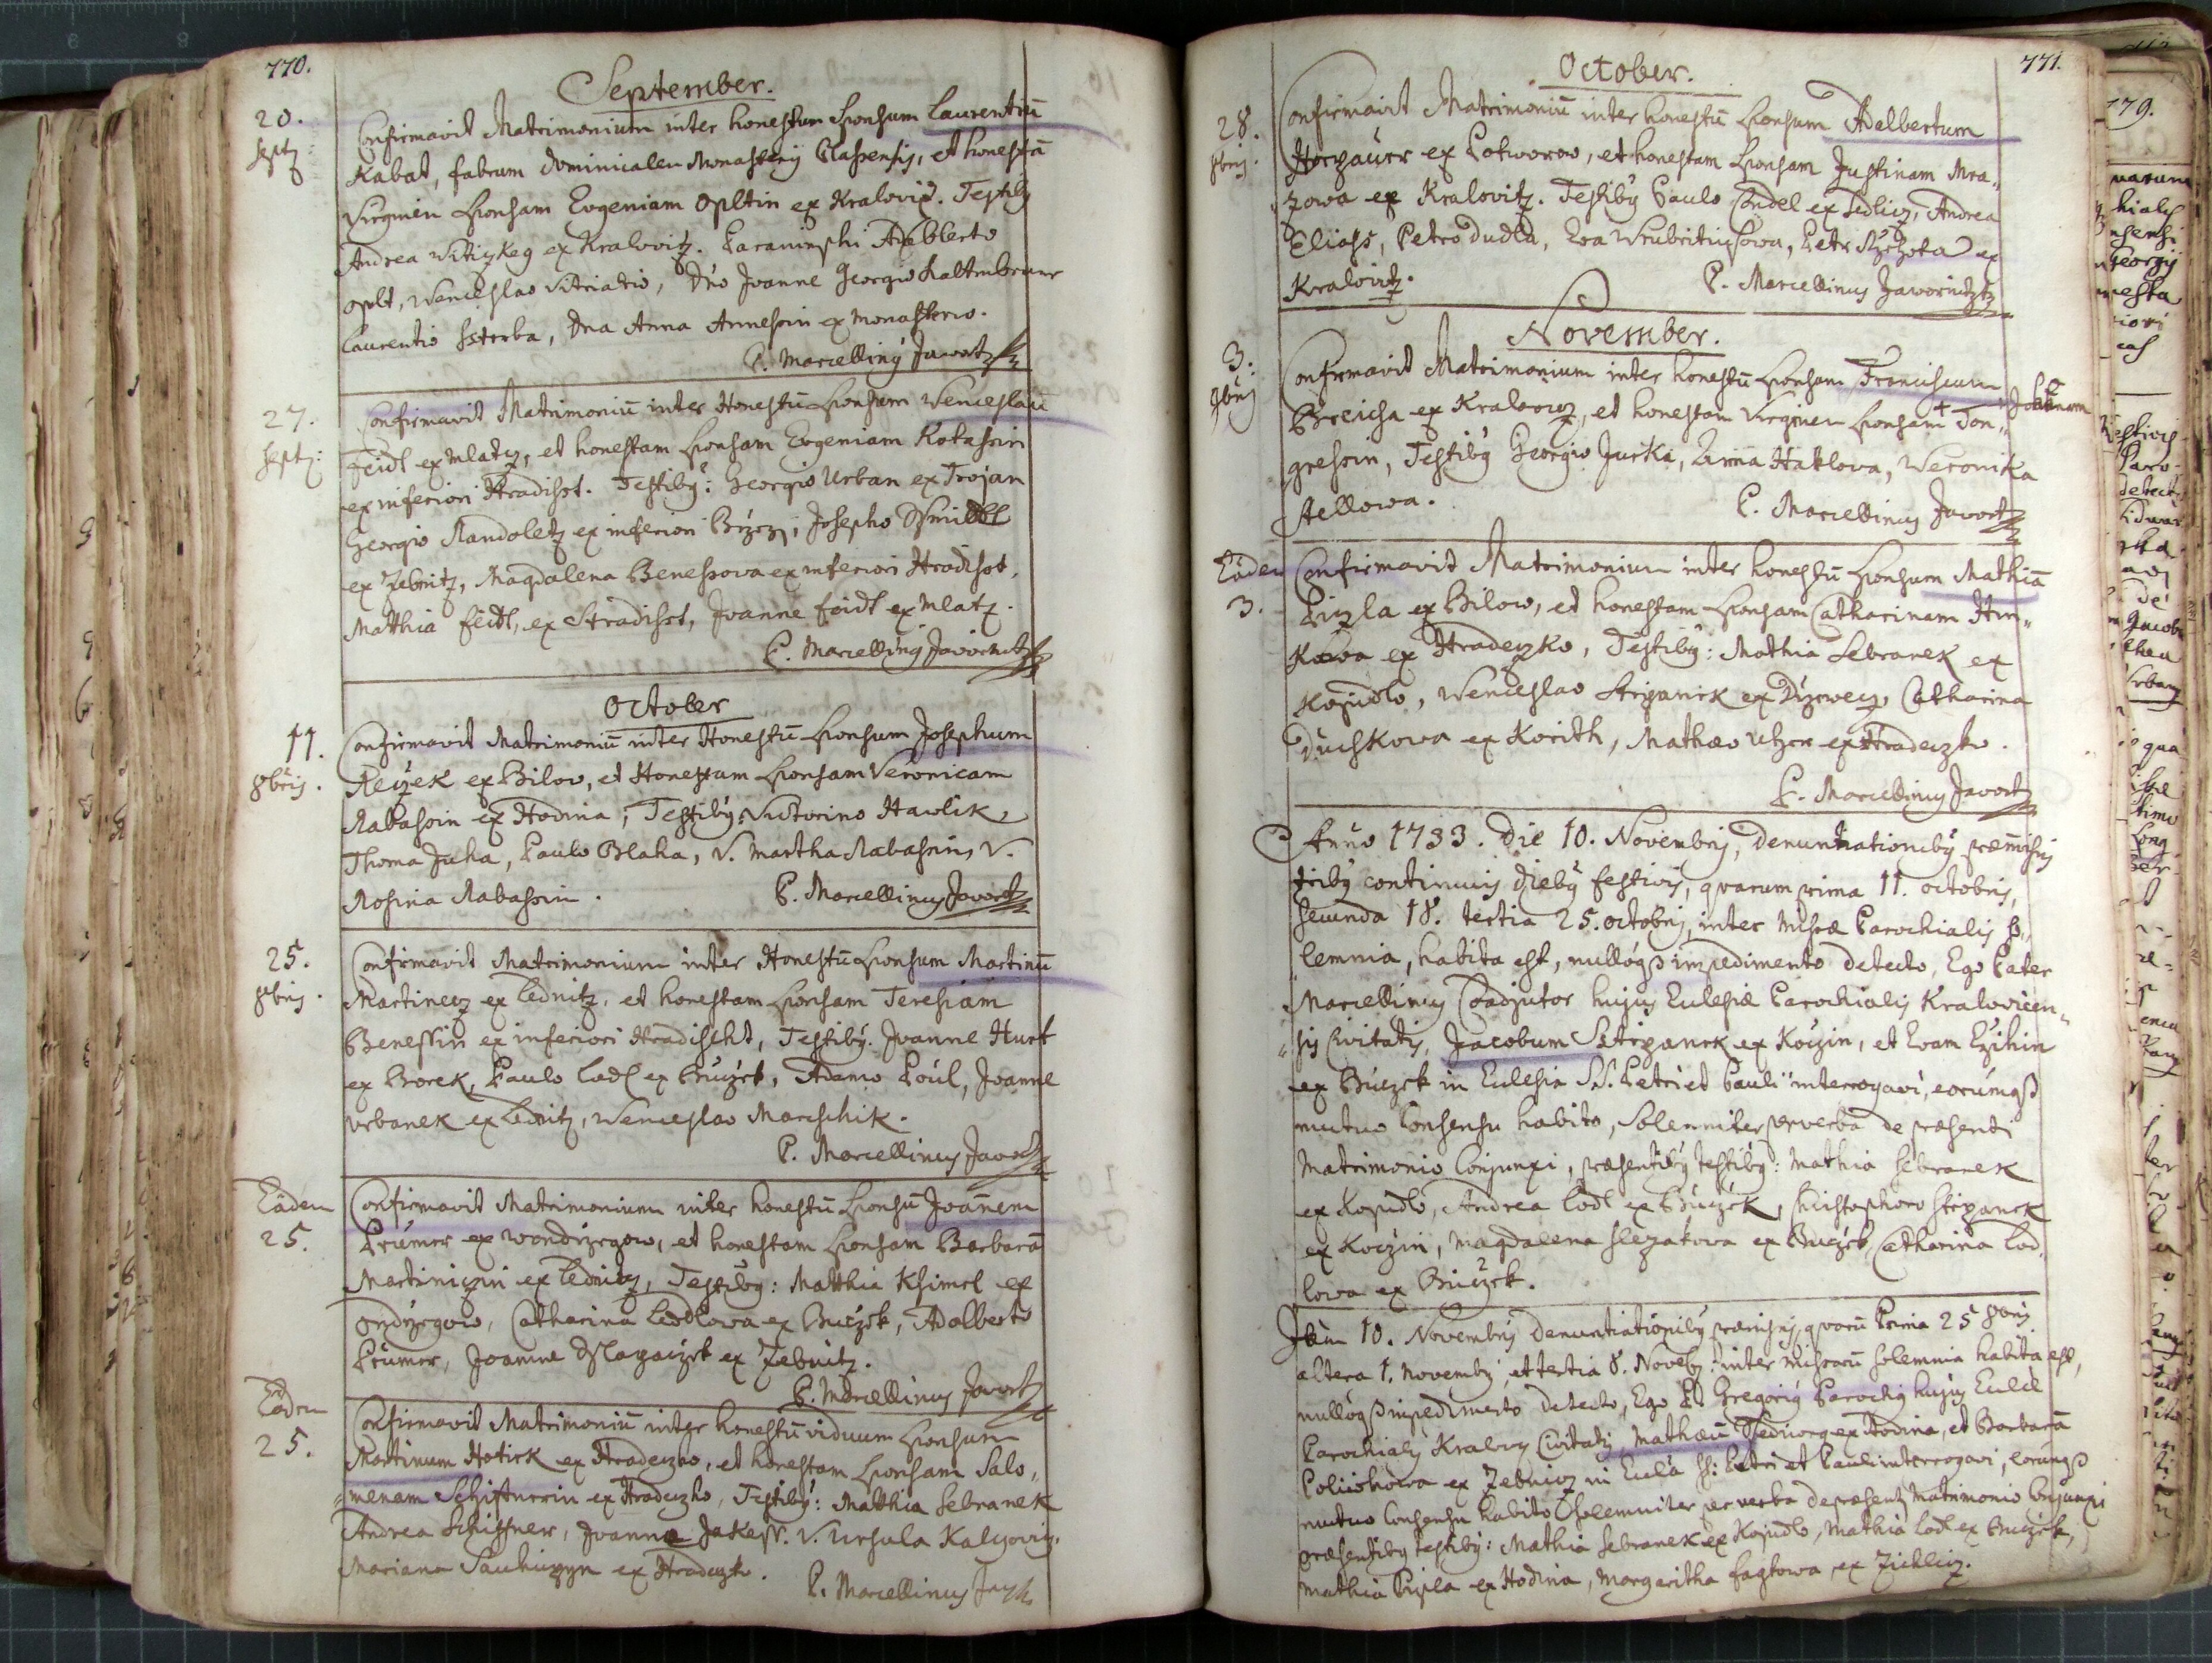 770.
September.
20. Confirmavit Matrimonium inter honestum Sponsum Laurentiū
Septȝ: Kabat, fabrum dominicalem Monasterij Plassensis, et honestā
Virginem Sponsam Evgeniam Opltin ex Kralovitz. Testibȝ
Andrea ex Kralovitz. Paranimphi Adalberto
Oplt, Wenceslao Vitriario, Dno Joanne Georgio Kaltenbruner
Laurentio Ssterba, Dna Anna ex Monasterio.
P. Marcellinȝ Javortz
27. Confirmavit Matrimoniū inter Honestū Sponsum Wenceslaū
Septȝ: Feidl ex Mlatz, et honestam Sponsam Evgeniam
ex inferiori Hradisst. Testibȝ: Georgio Urban ex Trojan
Georgio Randoletz ex inferiori, Josepho
ex Zebnitz, Magdalena Benessova ex inferiori Hradisst,
Matthia Feidl, ex Hradisst, Joanne Feidl ex Mlatz.
P. Marcellinȝ Javornitz
October
11. Confirmavit Matrimoniū inter Honestū Sponsum Josephum
8bris. ex Bilow, et Honestam Sponsam Veronicam
Rabassin ex Hodina; Testibȝ: Victorino Hawlik,
Thoma Juha, Paulo Blaha, V. Martha Rabassin, V.
Rosina Rabassin. P. Marcellinus Javortz
25. Confirmavit Matrimonium inter Honestū Sponsum Martinū
8bris. Martinecz ex Lednitz, et honestam Sponsam Teresiam
Benessin ex inferiori Hradischt, Testibȝ: Joanne Hurt
ex Borek, Paulo Lodl ex Buczek, Adamo Poul, Joanne
Urbanek ex Lednitz, Wenceslao Marschik.
P. Marcellinus Javortz
Eadem Confirmavit Matrimonium inter honestū Sponsū Joannem
25. Prumer ex, et honestam Sponsam Barbarā
Martiniczin ex Lednitz, Testibȝ: Matthia Khimel ex
Catharina Lodlowa ex Buczek, Adalberto
Prumer, Joanne ex Zebnitz.
P. Marcellinus Javortz
Eadem Confirmavit Matrimoniū inter honestū viduum Sponsum
25. Martinum ex Hradeczko, et honestam Sponsam Salo„
„menam Schiffnerin ex Hradeczko, Testibȝ: Matthia Sebranek
Andrea Schiffner, Joanne Jakess. V. Ursula
Mariana ex Hradeczk. P. Marcellinus
October. 771.
28. Confirmavit Matrimoniū inter honestū Sponsum Adelbertum
8bris. ex Potworow, et honestam Sponsam Justinam Mra„
„zowa ex Kralovitz. Testibȝ Paulo Condel ex Sedlicz, Andrea
Eliass, Petro Dudla, Eva, Petr ex
Kralovitz. P. Marcellinus Javornitztz
November.
3: Confirmavit Matrimonium inter honestū Sponsum Franciscum
9bris Breicha ex Kralovicz, et honestam Virginem Sponsam + Ton„
gressin, Testibȝ Georgio Jurka, Anna Haklova, Weronika
Aellowa. P. Marcellinus Javortz
Eadem Confirmavit Matrimonium inter honestū Sponsum Mathiā
3. Pizla ex Bilow, et honestam Sponsam Catharinam Hin„
Kowa ex Hradeczko, Testibȝ: Mathia Sebranek ex
Kopidlo, Wenceslao Strpanek ex, Catharina
Duchkowa ex Korith, Mathæo ex Hradeczko.
P. Marcellinus Javortz
Anno 1733. Die 10. Novembris, denuntiationibȝ præmissis
tribȝ continuis diebȝ festivis, quarum prima 11. octobris,
secunda 18. tertia 25. octobris, inter Missæ Parochialis so„
lemnia, habita est, nulloqȝ impedimento detecto, Ego Pater
Marcellinus Coadjutor hujus Eclesiæ Parochialis Kralovicen„
„sis Civitatis, Jacobum Sstrpanek ex Koczin, et Evam Czihin
ex Buczek in Eclesia S.S. Petri et Pauli interrogavi, eorumqȝ
mutuo Consensu habito, Solenniter per verba de præsenti
Matrimonio Conjunxi, præsentibȝ testibȝ: Mathia Sebranek
ex Kopidlo, Andrea Lodl ex Buczek, Christophoro Strpanek
ex Koczin, Magdalena Slezakova ex Buczek, Catharina Lod„
lowa ex Buczek.
Item 10. Novembris denuntiationibȝ præmissis, quarū Prima 25 8bris
altera 1. Novembris, et tertia 8. Novebȝ: inter Missarū solemnia habita est,
nulloqȝ impedimento detecto, Ego P. Gregoriȝ Parochȝ hujus Eccle
Parochialis Kralovic Civitatis, Mathæū ex Hodina, et Barbarā
ex Zebnicz in Ecla SS: Petri et Pauli interrogavi, eorumqȝ
mutuo Consensu habito Solemniter per verba de præsenti Matrimonio Conjunxi
præsentibȝ testibȝ: Mathia Sebranek ex Kopidlo, Mathia Lodl ex Buczek,
Mathia Pizla ex Hodina, Margaritha ex Zichlicz.
779.